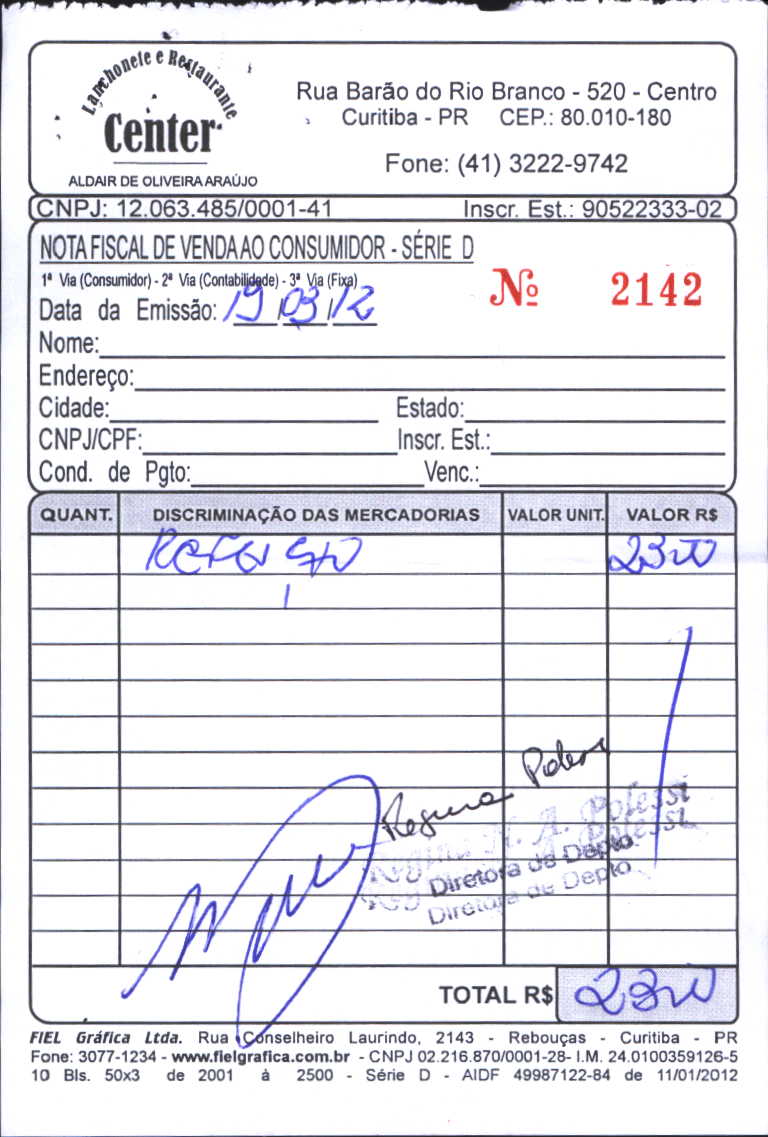 Lanchonete e Restaurante
Center
ALDAIR DE OLIVEIRA ARAÚJO
Rua Barão do Rio Branco - 520 - Centro
Curitiba - PR CEP.: 80.010-180
Fone: (41) 3222-9742
CNPJ: 12.063.485/0001-41 Inscr. Est.: 90522333-02
NOTA FISCAL DE VENDA AO CONSUMIDOR - SÉRIE D
1ª Via (Consumidor) - 2ª Via (Contabilidade) - 3ª Via (Fixa)
Nº 2142
Data da Emissão: 19/03/12
Nome:
Endereço:
Cidade: Estado:
CNPJ/CPF: Inscr. Est.:
Cond. de Pgto: Venc.:
QUANT. DISCRIMINAÇÃO DAS MERCADORIAS VALOR UNIT. VALOR R$
2300
Regina Polessi
Regina H. A. Polessi
Diretora de Depto
Diretora de Depto
TOTAL R$ 2300
FIEL Gráfica Ltda. Rua Conselheiro Laurindo, 2143 - Rebouças - Curitiba - PR
Fone: 3077-1234 - www.fielgrafica.com.br - CNPJ 02.216.870/0001-28- I.M. 24.0100359126-5
10 Bls. 50x3 de 2001 à 2500 - Série D - AIDF 49987122-84 de 11/01/2012